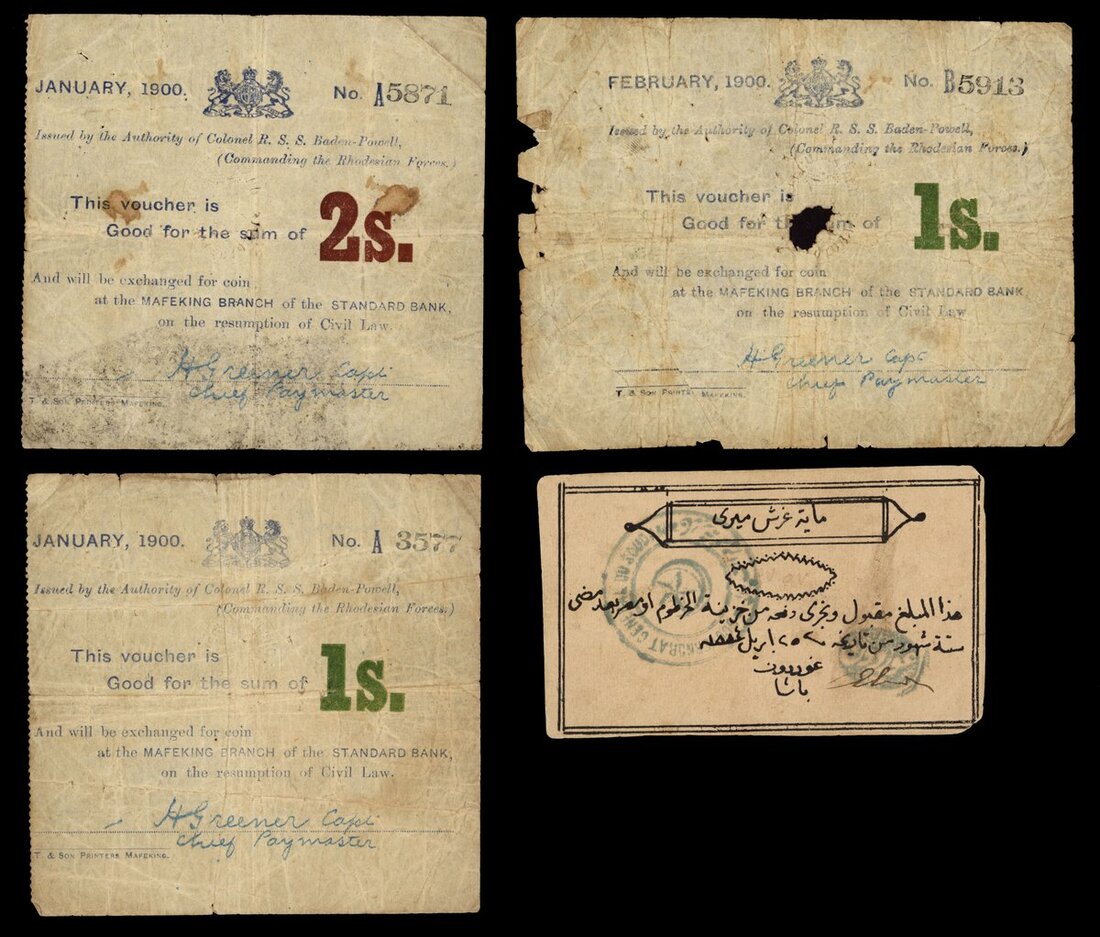 JANUARY, 1900. No. A5871
Issued by the Authority of Colonel R. S. S. Baden-Powell,
(Commanding the Rhodesian Forces.)
This voucher is
Good for the sum of 2s.
And will be exchanged for coin
at the MAFEKING BRANCH of the STANDARD BANK,
on the resumption of Civil Law.
H Greener Capt
Chief Paymaster
T. & SON PRINTERS MAFEKING.
FEBRUARY, 1900. No. B5913
Issued by the Authority of Colonel R. S. S. Baden-Powell,
(Commanding the Rhodesian Forces.)
This voucher is
Good for sum of 1s.
And will be exchanged for coin
at the MAFEKING BRANCH of the STANDARD BANK,
on the resumption of Civil Law
H Greener Capt
Chief Paymaster
T. & SON PRINT MAFEKING.
JANUARY, 1900. No. A 3577
Issued by the Authority of Colonel R. S. S. Baden-Powell,
(Commanding the Rhodesian Forces.)
This voucher is
Good for the sum of 1s.
And will be exchanged for coin
at the MAFEKING BRANCH of the STANDARD BANK,
on the resumption of Civil Law.
H Greener Capt
Chief Paymaster
T. & SON PRINTERS MAFEKING.
ماية غرش ميرى
هذا المبلغ مقبول ويجرى دفعه من خزينة الخرطوم او مصر بعد مضى
ستة شهور من تاريخه ٢٥ ابريل ١٨٨٤
غوردون
باشا